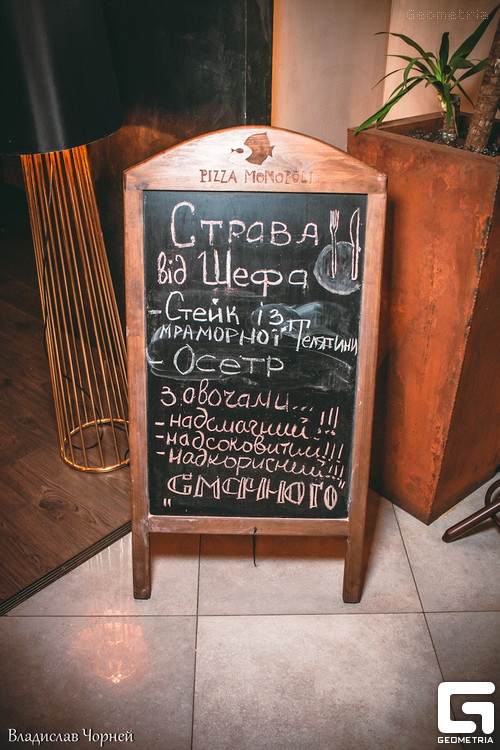 Geometria
PIZZA MONOPOLI
Страва
від Шефа
-Стейк із
мраморної Телятини
-Осетр
з овочами...!!!
-надсмачний!!!
-надсоковитий!!!
-надкорисний!!!
„Смачного"
Владислав Чорней
G
GEOMETRIA